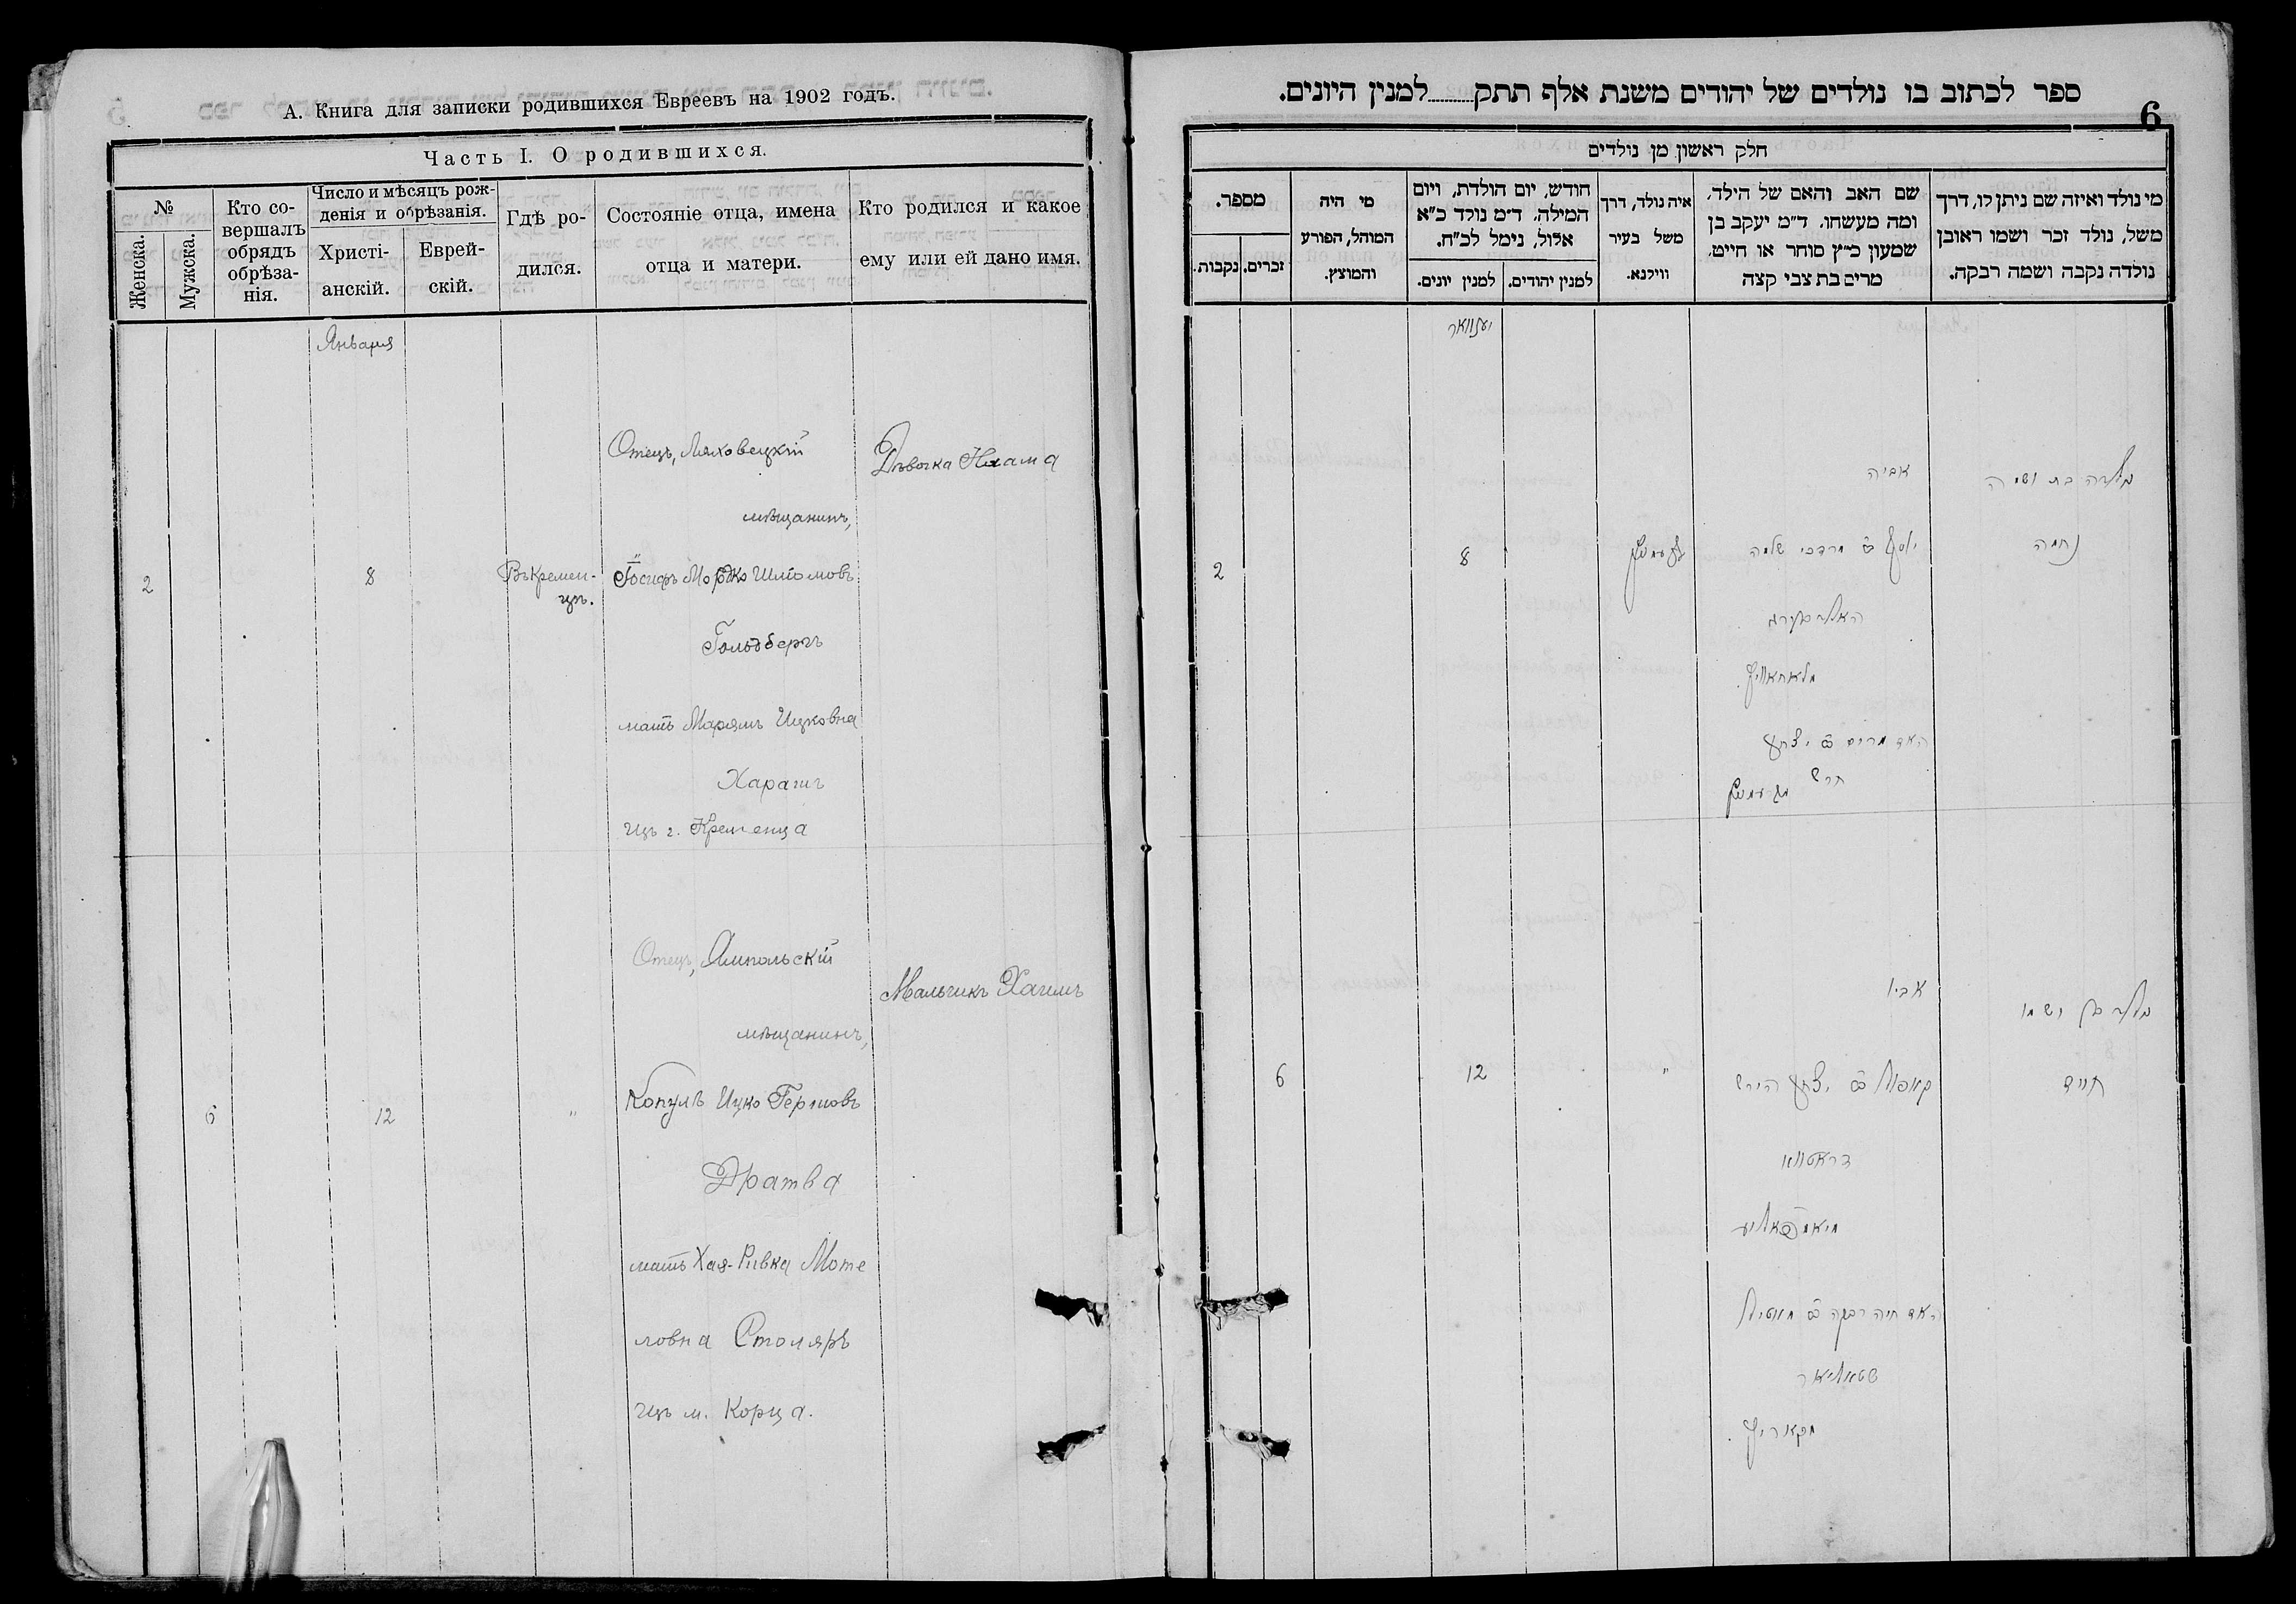 А. Книга для записки родившихся Евреевъ на 1902 годъ.
Часть I. О родившихся.
№
Женска.
Мужска.
Кто со-
вершалъ
обрядъ
обрѣза-
нія.
Число и мѣсяцъ рож-
денія и обрѣзанія.
Христі-
анскій.
Еврей-
скій.
Гдѣ ро-
дился.
Состояніе отца, имена
отца и матери.
Кто родился и какое
ему или ей дано имя.
Января
2
8
Въ Кремен-
цѣ.
Отецъ, Ляховецкій
мѣщанинъ,
Іосифъ Мордко Шліомовъ
Гольдбергъ
мать Марямъ Ицковна
Харашъ
изъ г. Кременца
Дѣвочка Нхама
6
12
"
Отецъ, Ямпольскій
мѣщанинъ,
Копулъ Ицко Гершовъ
Дратва
мать Хая-Ривка Моте
ловна Столяръ
изъ м. Корца.
Мальчикъ Хаимъ
ספר לכתוב בו נולדים של יהודים משנת אלף תתק למנין היונים.
6
חלק ראשון מן נולדים
מי נולד ואיזה שם ניתן לו, דרך
משל, נולד זכר ושמו ראובן
נולדה נקבה ושמה רבקה.
שם האב והאם של הילד,
ומה מעשהו. ד"מ יעקב בן
שמעון כ"ץ סוחר או חייט,
מרים בת צבי קצה
איה נולד, דרך
משל בעיר
ווילנא.
חודש, יום הולדת, ויום
המילה. ד"מ נולד כ"א
אלול, נימל לכ"ח.
למנין יהודים.
למנין יונים.
מי היה
המוהל, הפורע
והמוצץ.
מספר.
זכרים.
נקבות.
יענוואר
נולדה בת ושמה
נחמה
אביה
יוסף ב"ר מרדכי שלמה
גאלדבערג
מלאחאוויץ.
האם מרים ב"ר יצחק
חרש
מקרעמניץ
קרעמניץ
8
2
נולד בן ושמו
חיים
אביו
קאפול ב"ר יצחק הירש
דראטווא
מיאמפאליע
האם חיה רבקה ב"ר מאטיל
שטאליאר
מקאריץ.
"
12
6